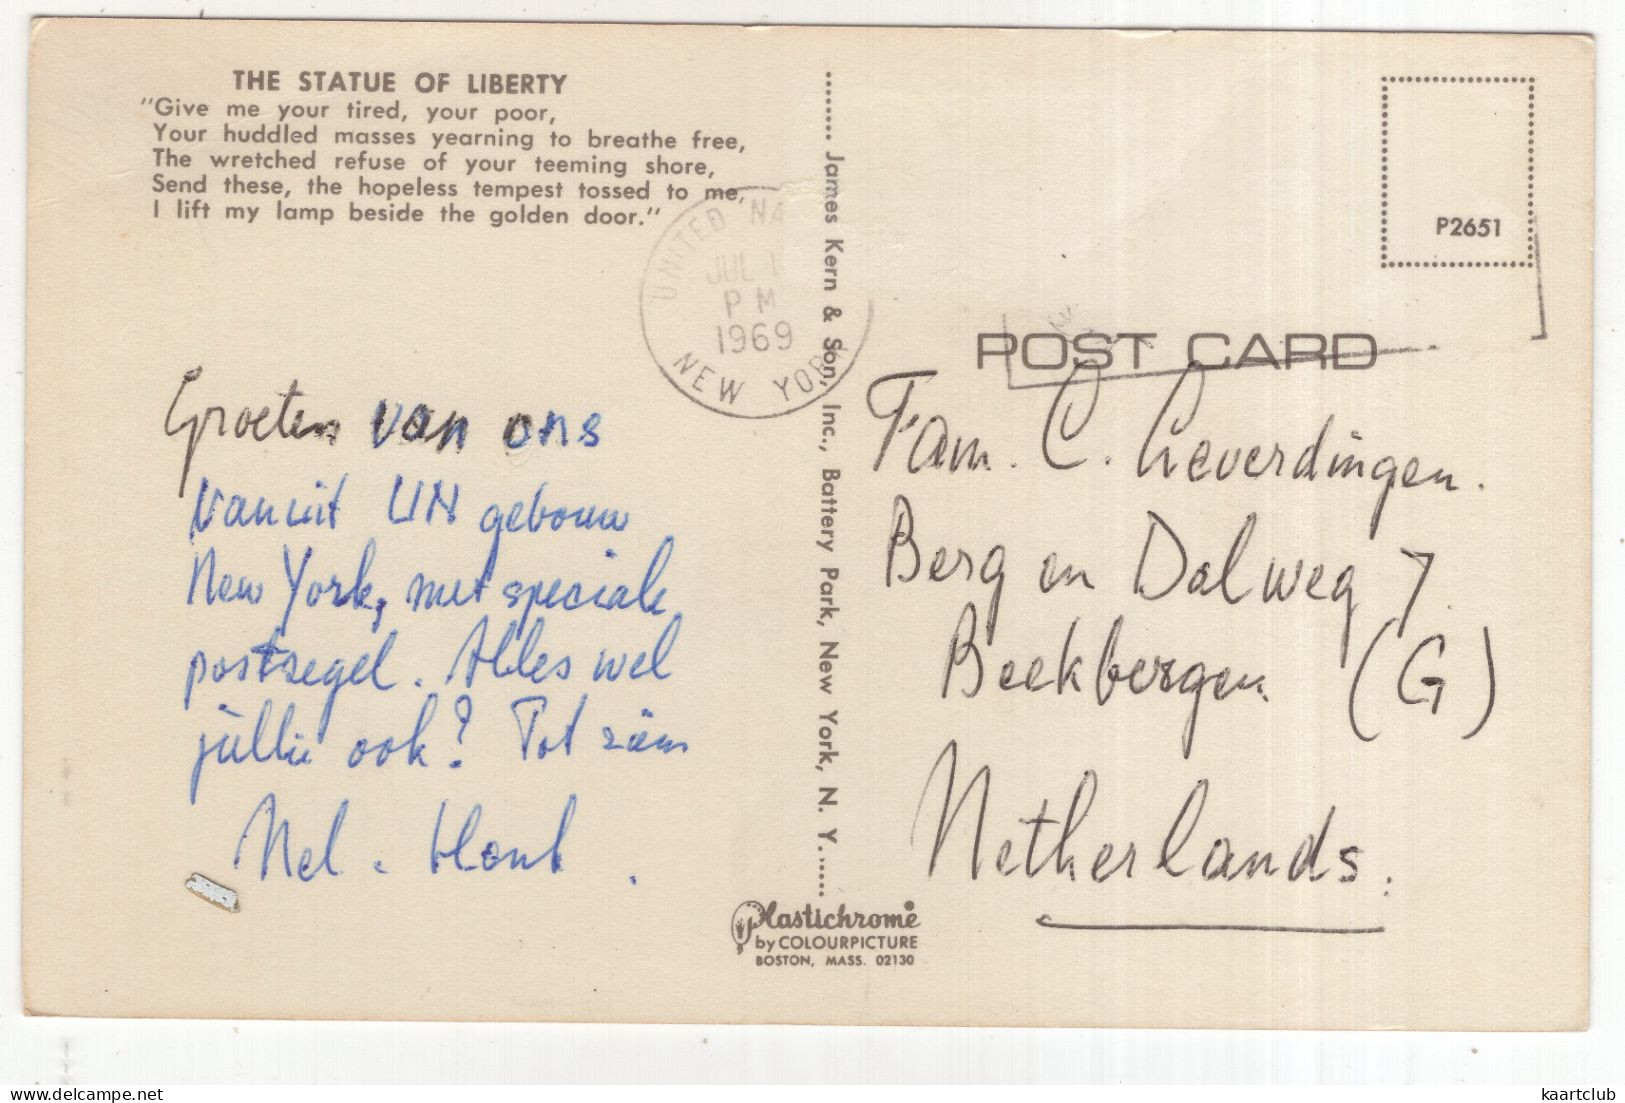 THE STATUE OF LIBERTY
"Give me your tired, your poor,
Your huddled masses yearning to breathe free,
The wretched refuse of your teeming shore,
Send these, the hopeless tempest tossed to me,
I lift my lamp beside the golden door."
UNITED NA
JUL 1
PM
1969
NEW YORK
Groeten van ons
vanuit UN gebouw
New York, met speciale
postzegel. Alles wel
jullie ook? Tot ziens
Nel. Henk.
James Kern & Son, Inc., Battery Park, New York, N. Y.
Plastichrome
by COLOURPICTURE
BOSTON, MASS. 02130
P2651
POST CARD
Fam. C. Leverdingen.
Berg en Dalweg 7.
Beekbergen (G)
Netherlands.
kaartclub